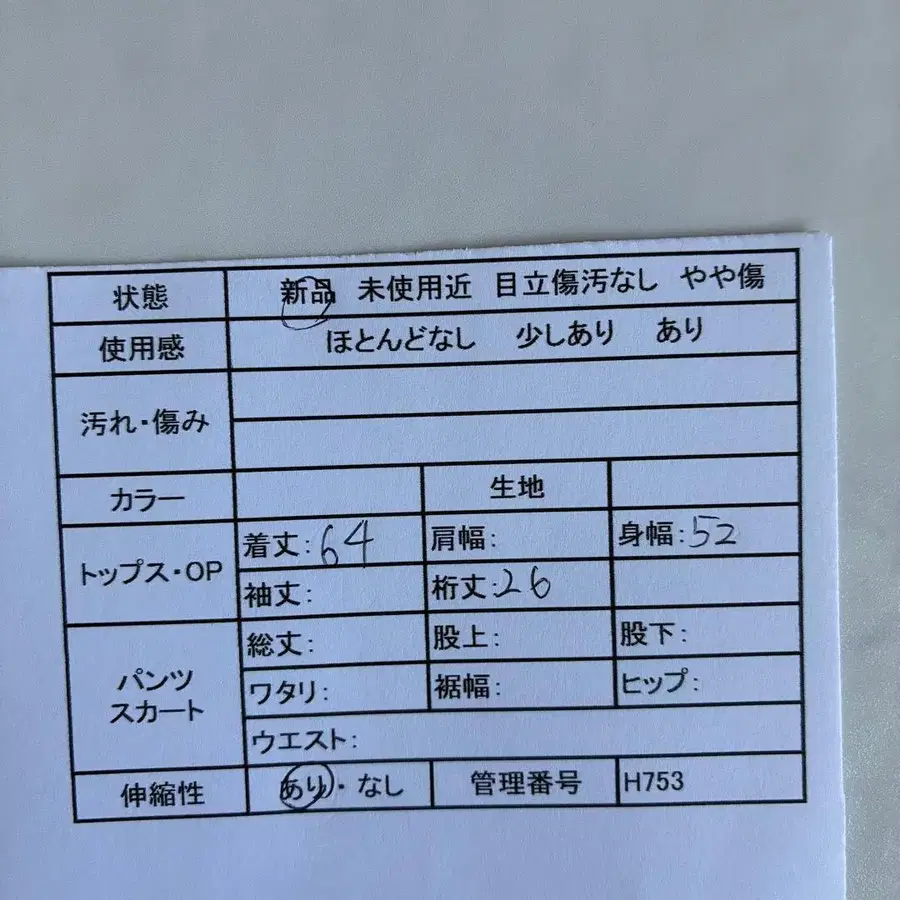 状態 新品 未使用近 目立傷汚なし やや傷
使用感 ほとんどなし 少しあり あり
汚れ・傷み
カラー 生地
トップス・OP
着丈:64 肩幅: 身幅:52
袖丈: 裄丈:26
パンツ
スカート
総丈: 股上: 股下:
ワタリ: 裾幅: ヒップ:
ウエスト:
伸縮性 あり・なし 管理番号 H753